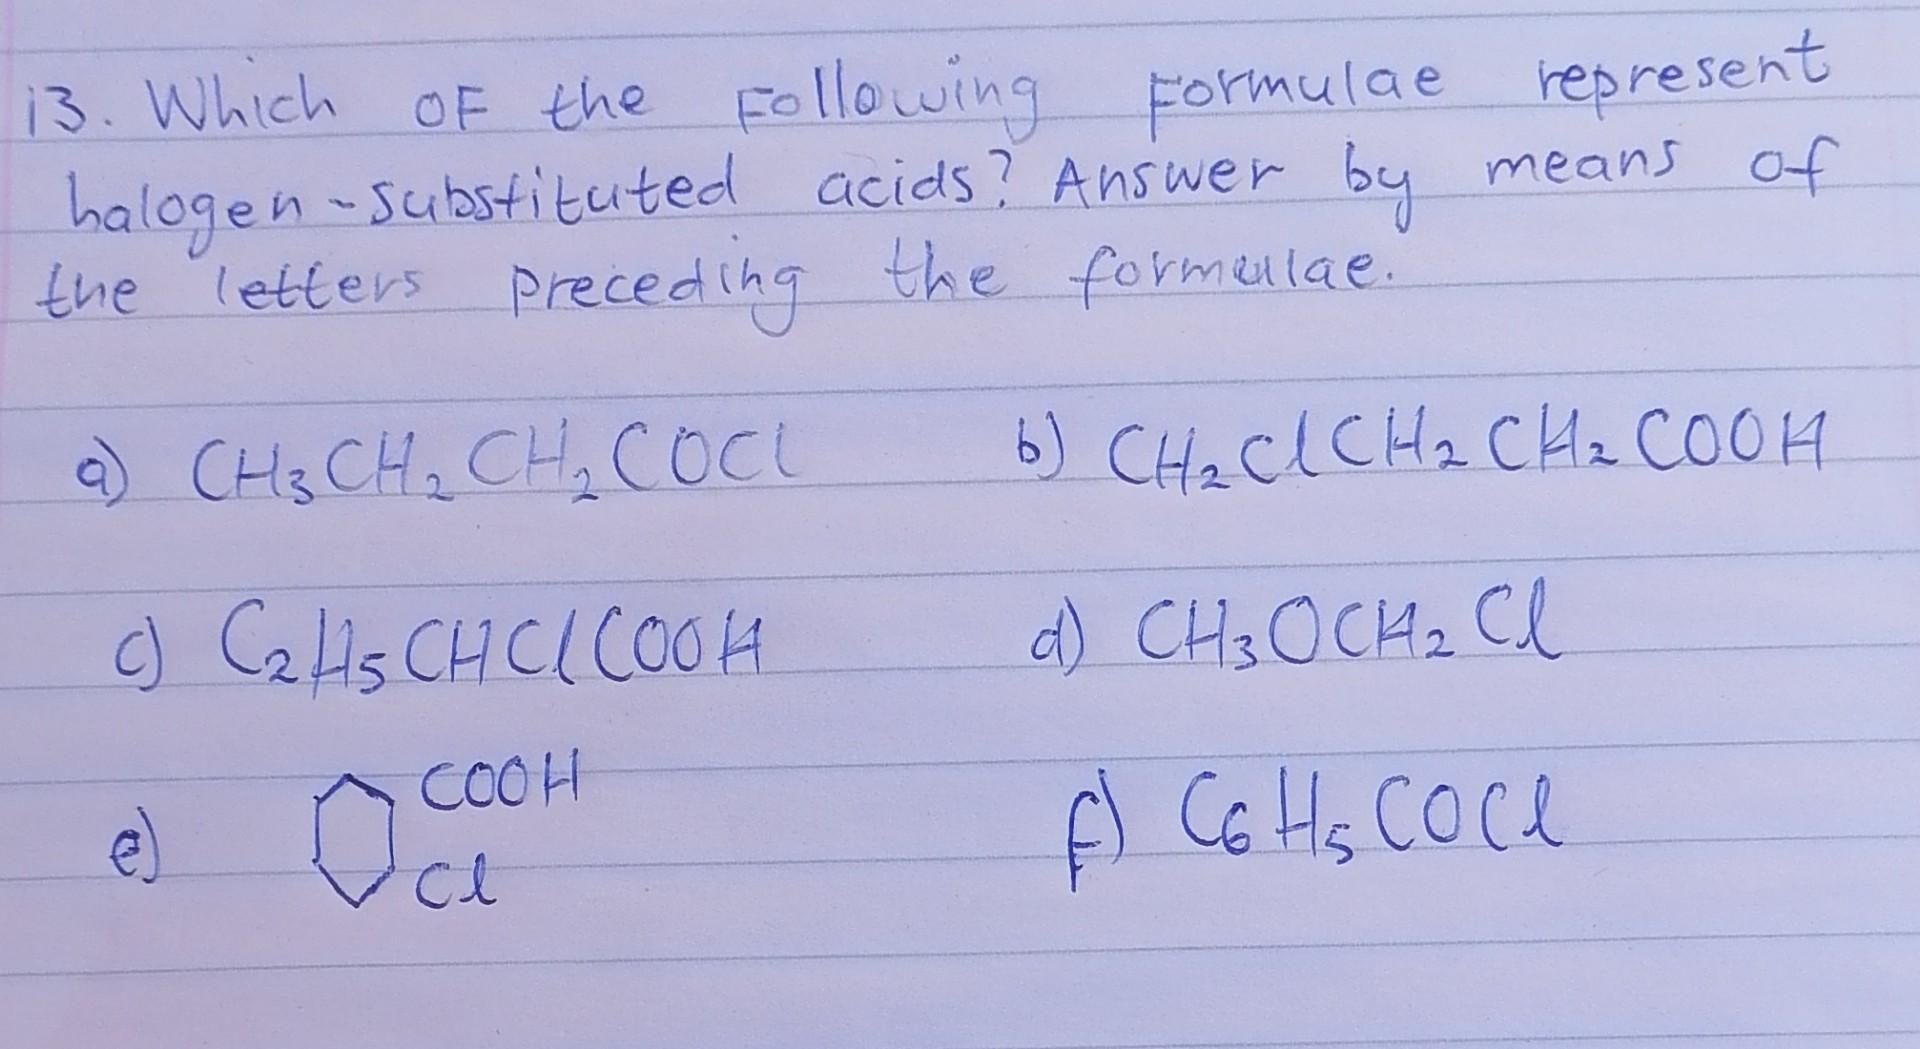 13. Which OF the Following Formulae represent
halogen-substituted acids? Answer by means of
the letters preceding the formulae.
a) CH₃CH₂CH₂COCl b) CH₂ClCH₂CH₂COOH
c) C₂H₅CHClCOOH d) CH₃OCH₂Cl
COOH
e) f) C₆H₅COCl
Cl